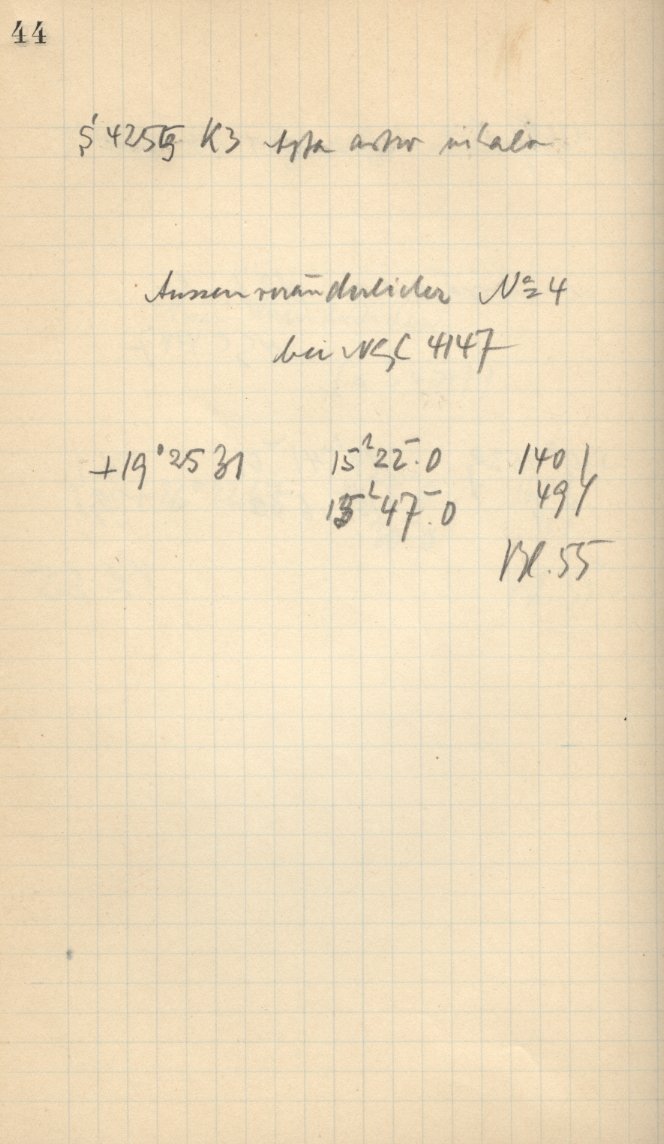 44
S 4255 K3 Agfa astro
Aussenveränderlicher No 4
bei NGC 4147
+19° 25 31 15h 22m.0 140
15h 47m.0 49
Bl. 55